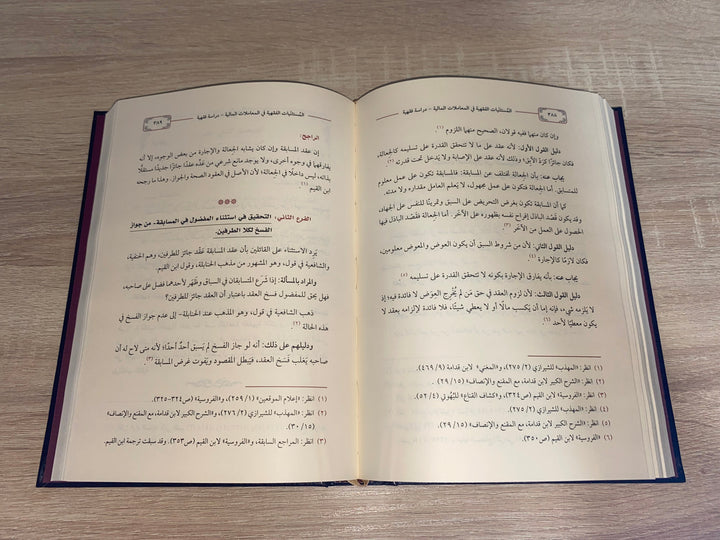 المُستثنيات الفقهية في المعاملات المالية - دراسة فقهية
٣٨٨
وإن كان منهما ففيه قولان، الصحيح منهما اللزوم (١).
دليل القول الأول: لأنه عقد على ما لا تتحقق القدرة على تسليمه كالجعالة,
فكان جائزًا كردّ الآبق؛ وذلك لأنه عقد على الإصابة ولا يدخل تحت قدرته (٢).
يجاب عنه: بأن الجعالة تختلف عن المسابقة؛ فالمسابقة تكون على عمل معلوم
للمتسابق، أما الجعالة فتكون على عمل مجهول، لا يُعلم العامل مقداره ولا مدته.
كما أن المسابقة تكون بغرض التحريض على السبق وتمرينًا للنفس على الجهد،
وقد يكون قصْد الباذل إفراح نفسه بظهوره على الآخر، أما الجعالة فقصْد الباذل فيها
الحصول على العمل من الآخر (٣).
دليل القول الثاني: لأن من شروط السبق أن يكون العوض والمعوض معلومين،
فكان لازمًا كالإجارة (٤).
يجاب عنه: بأنه يفارق الإجارة بكونه لا تتحقق القدرة على تسليمه (٥).
دليل القول الثالث: لأن لزوم العقد في حق مَن لم يُخْرِج العِوَض لا فائدة فيه؛ إذ
لا يَلزمه شيء، فإنه إما أن يَكسب مالًا أو لا يعطي شيئًا، فلا فائدة لإلزامه بعقد لا
يكون معطيًا لأحد (٦).
(١) انظر: «المهذب» للشيرازي (٢/ ٢٧٥)، و«المغني» لابن قدامة (٩/ ٤٦٩).
(٢) انظر: «الشرح الكبير لابن قدامة، مع المقنع والإنصاف» (١٥/ ٢٩).
(٣) انظر: «الفروسية» لابن القيم (ص٣٢٤)، و«كشاف القناع» للبُهُوتي (٤/ ٥٢).
(٤) انظر: «المهذب» للشيرازي (٢/ ٢٧٥).
(٥) انظر: «الشرح الكبير لابن قدامة، مع المقنع والإنصاف» (١٥/ ٢٩).
(٦) «الفروسية» لابن القيم (ص٣٥٠).
المُستثنيات الفقهية في المعاملات المالية - دراسة فقهية
٣٨٩
الراجح:
إن عقد المسابقة وإن كان يشابه الجعالة والإجارة من بعض الوجوه، إلا أنه
يفارقهما في وجوه أخرى، ولا يوجد مانع شرعي من عَدِّه عقدًا جائزًا جديدًا مستقلًّا
بذاته، ليس داخلًا في الجعالة؛ لأن الأصل في العقود الصحة والجواز. وهذا ما رجحه
ابن القيم (١).
الفرع الثاني: التحقيق في استثناء المفضول في المسابقة، من جواز
الفسخ لكلا الطرفين.
يَرِد الاستثناء على القائلين بأن عقد المسابقة عقد جائز للطرفين، وهم الحنفية،
والشافعية في قول، وهو المشهور من مذهب الحنابلة، وقول ابن القيم.
والمراد بالمسألة: إذا شَرَع المتسابقان في السباق وظَهَر لأحدهما فضل على صاحبه،
فهل يحق للمفضول فسخ العقد باعتبار أن العقد جائز للطرفين؟
ذهب الشافعية في قول، وهو المذهب عند الحنابلة- إلى عدم جواز الفسخ في
هذه الحالة (٢).
ودليلهم على ذلك: أنه لو جاز الفسخ لم يَسبق أحدٌ أحدًا؛ لأنه متى لاح له أن
صاحبه يَغلب فَسَخ العقد، فيَبطل المقصود ويَفوت غرض المسابقة (٣).
(١) انظر: «إعلام الموقعين» (١/ ٢٥٩)، و«الفروسية» (ص٣٢٤-٣٢٥).
(٢) انظر: «المهذب» للشيرازي (٢/ ٢٧٦)، و«الشرح الكبير لابن قدامة، مع المقنع والإنصاف»
(١٥/ ٣٠).
(٣) انظر: المراجع السابقة، و«الفروسية» لابن القيم (ص٣٥٣). وقد سبقت ترجمة ابن القيم.